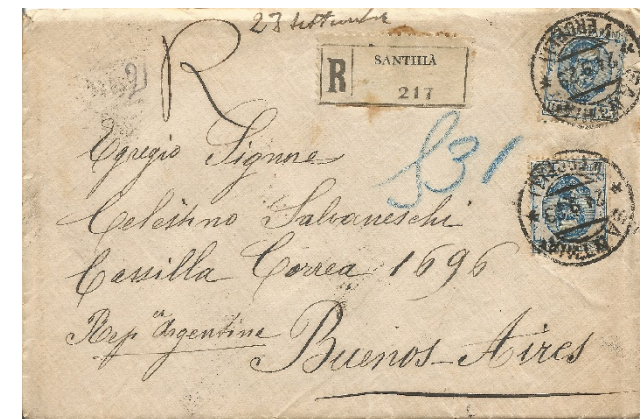 27 settembre
R
R SANTHIÀ
217
531
Egregio Signore
Celestino Salvaneschi
Cassilla Correa 1696
Repca Argentina
Buenos-Aires